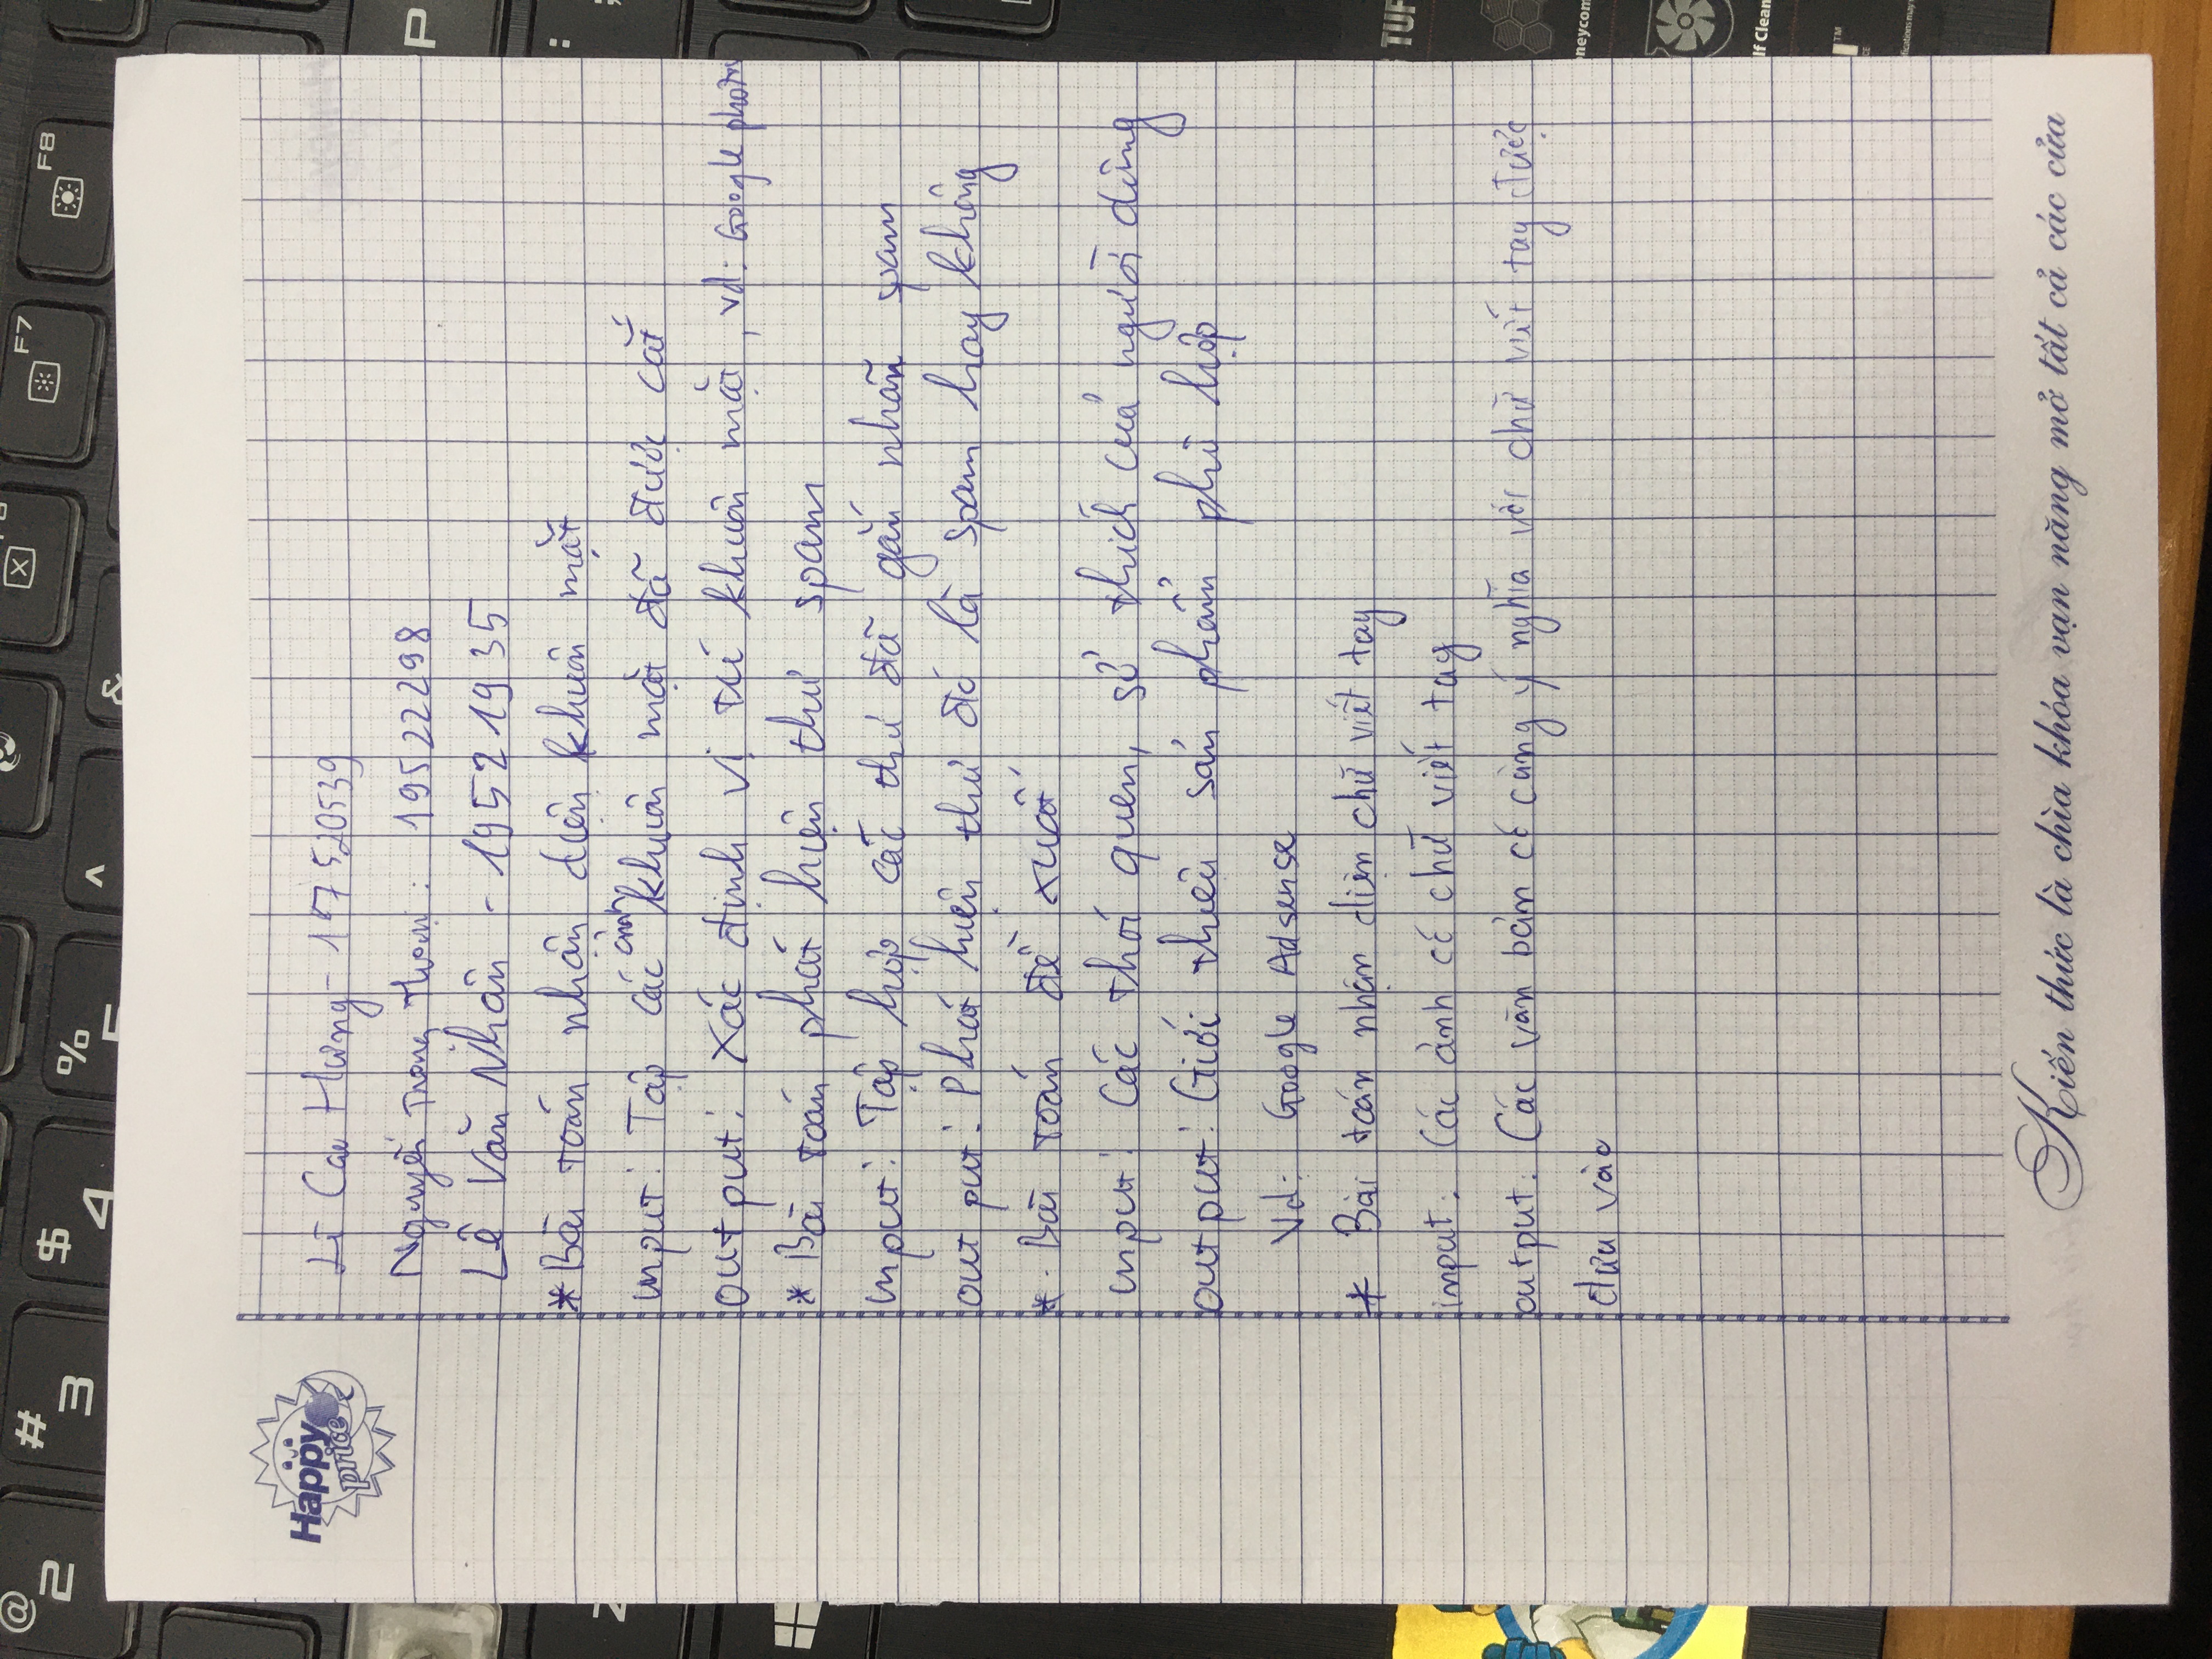 @ 2
# 3
$ 4
% 5
^
&
F7
F8
Happy
price
Cao Hưng - 17520539
Nguyễn Trọng : 19522298
Lê Văn Nhân - 19521935
* Bài toán nhận diện khuôn mặt
input: Tập các ảnh khuôn mặt đã được cắt
output: Xác định vị trí khuôn mặt, vd: Google photos
* Bài toán phát hiện thư spam
input: Tập hợp các thư đã gắn nhãn spam
output: Phát hiện thư đó là spam hay không
* Bài toán đề xuất
input: Các thói quen, sở thích của người dùng
output: Giới thiệu sản phẩm phù hợp
Vd: Google Adsense
* Bài toán nhận diện chữ viết tay
input: Các ảnh có chữ viết tay
output: Các văn bản có cùng ý nghĩa với chữ viết tay được
đưa vào
Kiến thức là chìa khóa vạn năng mở tất cả các cửa
P
:
Z
TUF